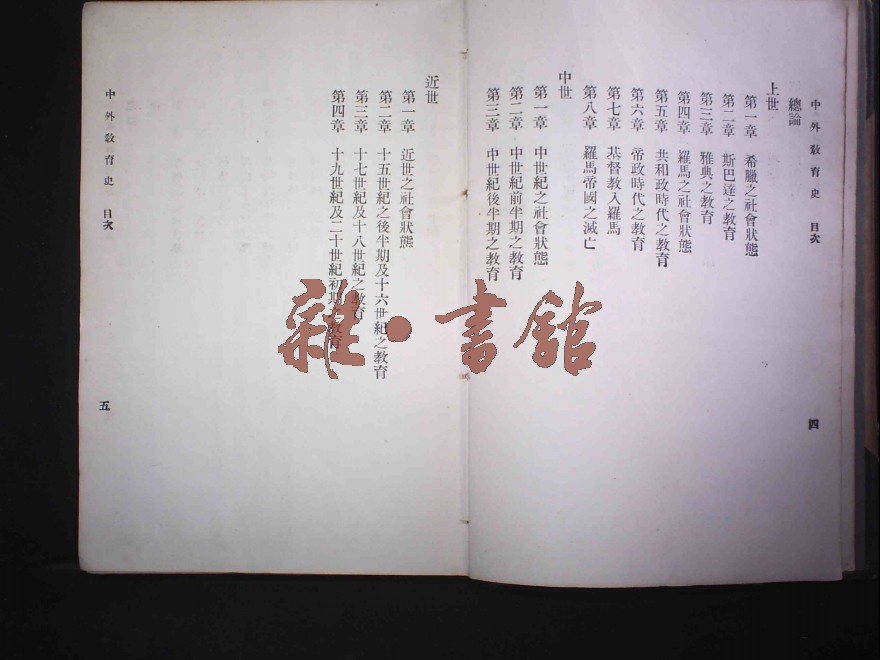 中外教育史 目次
總論
上世
第一章 希臘之社會狀態
第二章 斯巴達之教育
第三章 雅典之教育
第四章 羅馬之社會狀態
第五章 共和政時代之教育
第六章 帝政時代之教育
第七章 基督教入羅馬
第八章 羅馬帝國之滅亡
中世
第一章 中世紀之社會狀態
第二章 中世紀前半期之教育
第三章 中世紀後半期之教育
四
近世
第一章 近世之社會狀態
第二章 十五世紀之後半期及十六世紀之教育
第三章 十七世紀及十八世紀之教育
第四章 十九世紀及二十世紀初期之教育
中外教育史 目次
五
雜·書館